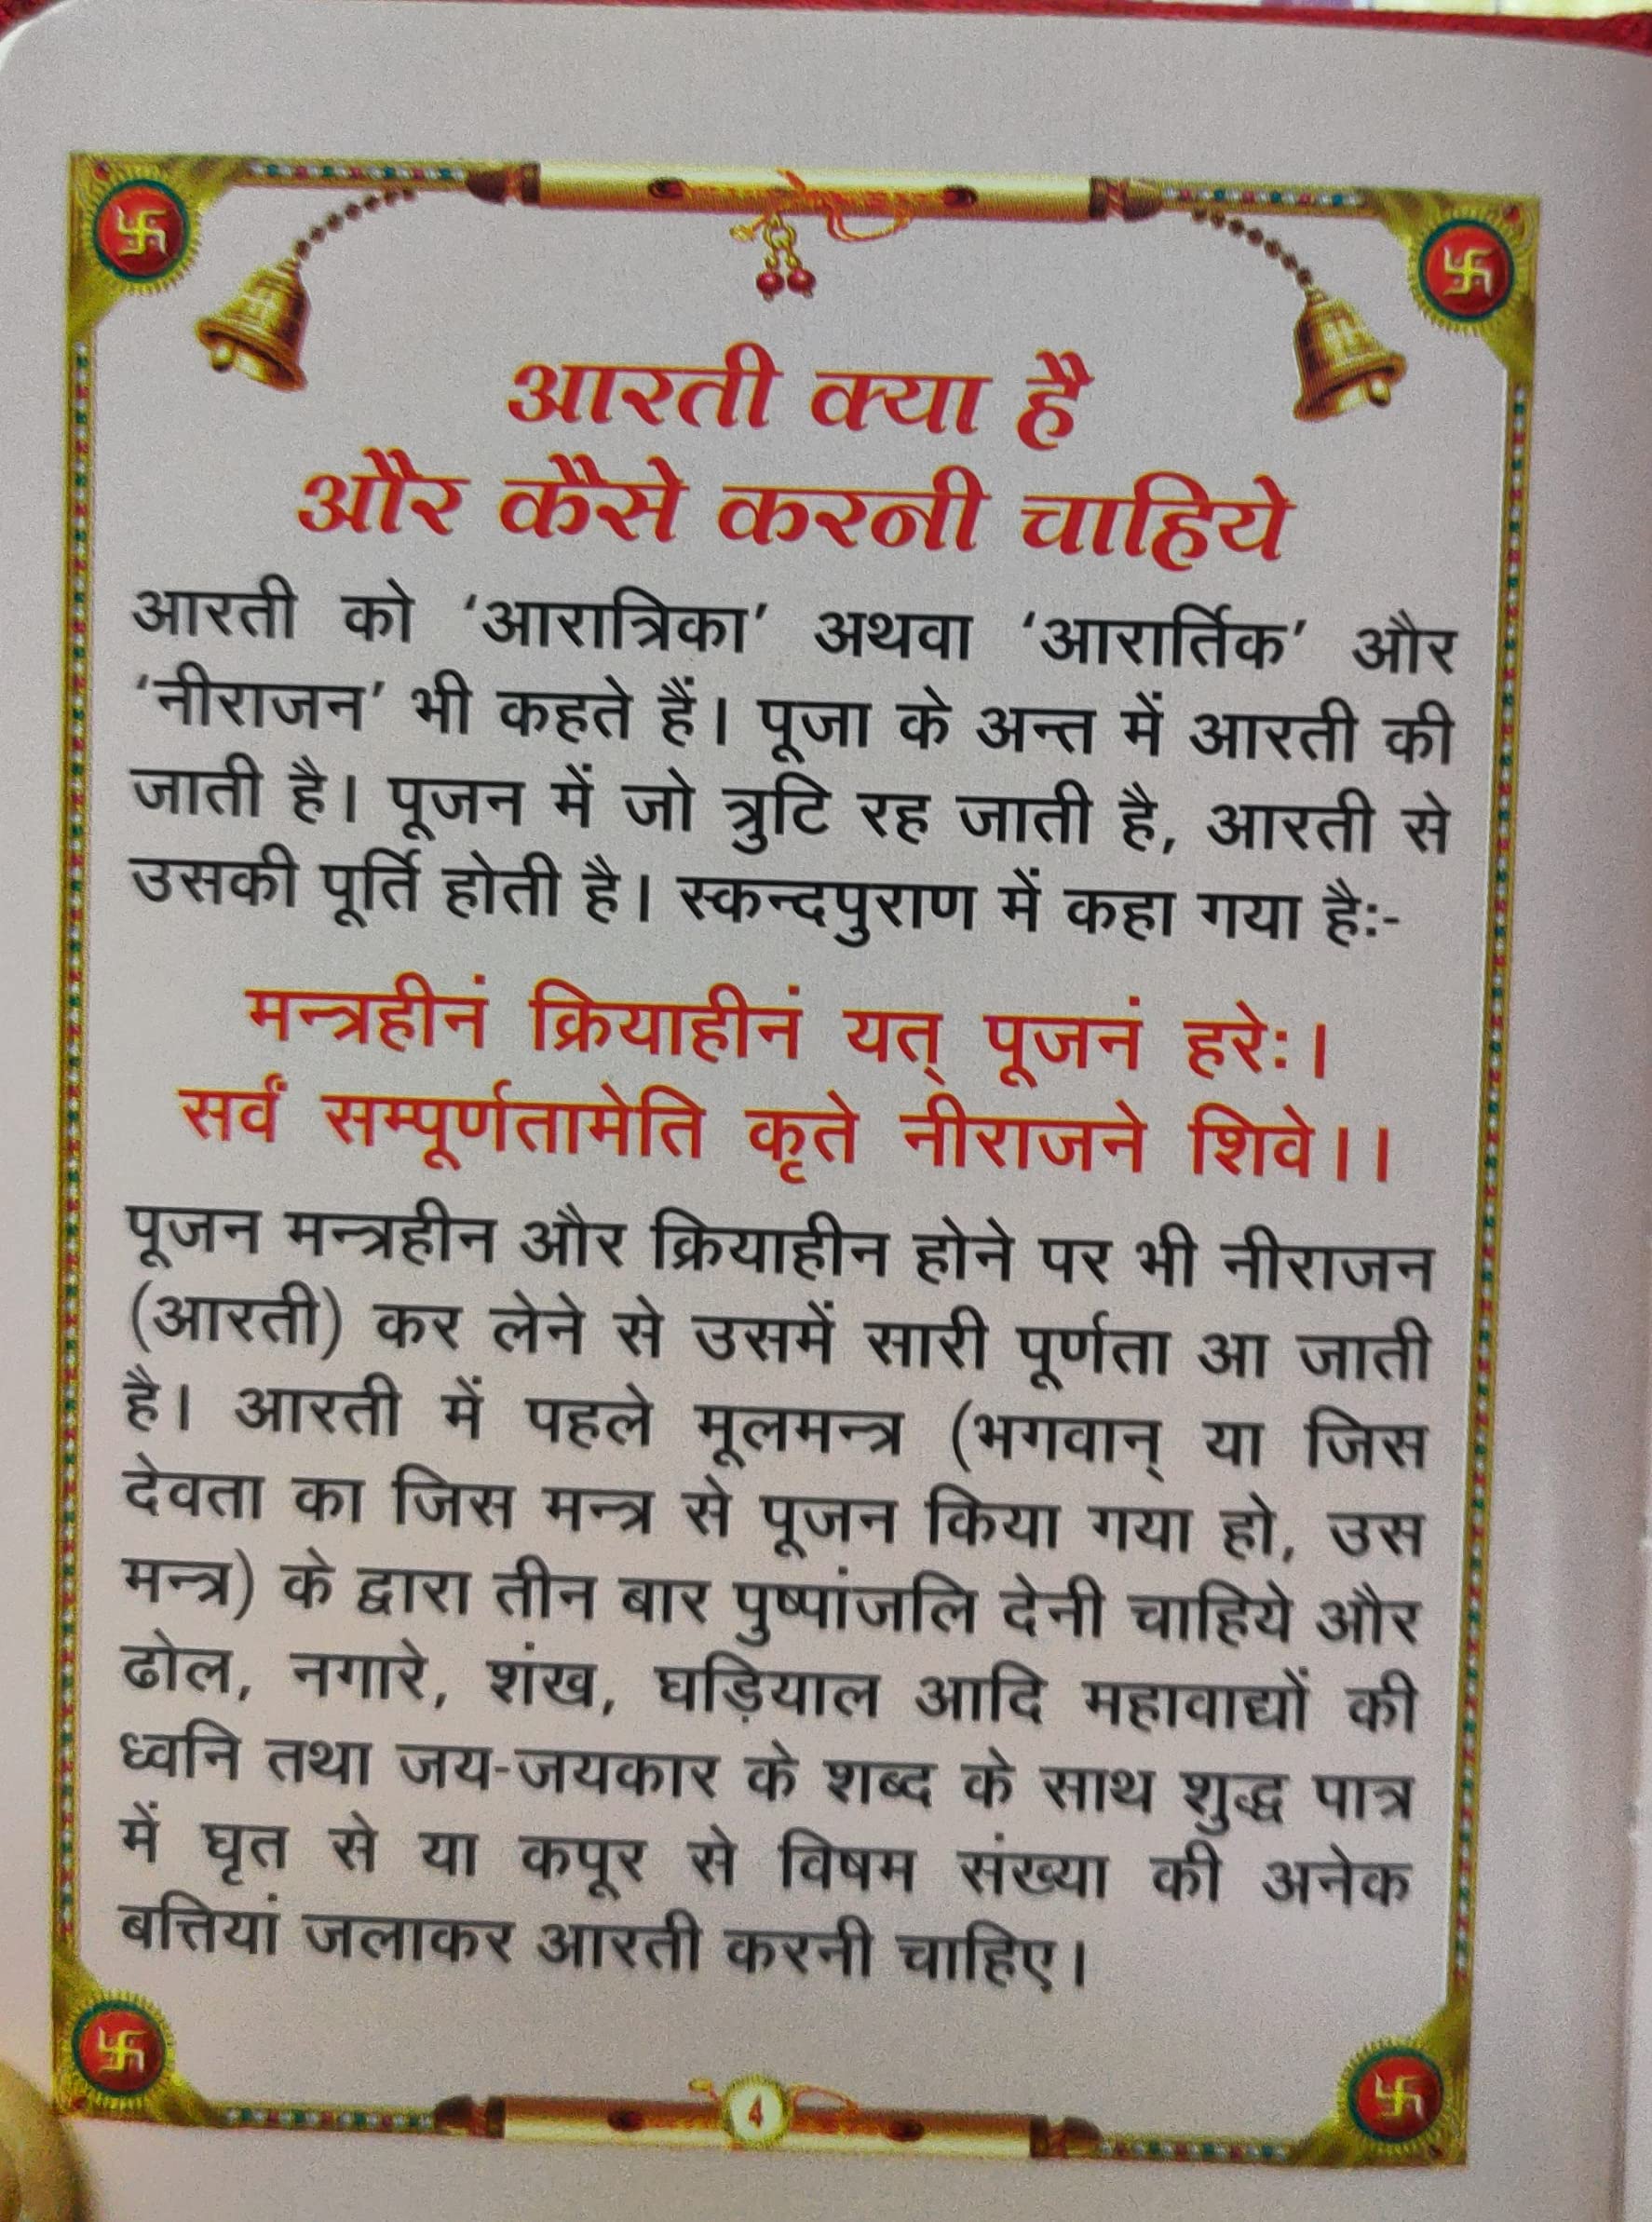 आरती क्या है
और कैसे करनी चाहिये
आरती को ‘आरात्रिका’ अथवा ‘आरार्तिक’ और
‘नीराजन’ भी कहते हैं। पूजा के अन्त में आरती की
जाती है। पूजन में जो त्रुटि रह जाती है, आरती से
उसकी पूर्ति होती है। स्कन्दपुराण में कहा गया है:-
मन्त्रहीनं क्रियाहीनं यत् पूजनं हरेः।
सर्वं सम्पूर्णतामेति कृते नीराजने शिवे।।
पूजन मन्त्रहीन और क्रियाहीन होने पर भी नीराजन
(आरती) कर लेने से उसमें सारी पूर्णता आ जाती
है। आरती में पहले मूलमन्त्र (भगवान् या जिस
देवता का जिस मन्त्र से पूजन किया गया हो, उस
मन्त्र) के द्वारा तीन बार पुष्पांजलि देनी चाहिये और
ढोल, नगारे, शंख, घड़ियाल आदि महावाद्यों की
ध्वनि तथा जय-जयकार के शब्द के साथ शुद्ध पात्र
में घृत से या कपूर से विषम संख्या की अनेक
बत्तियां जलाकर आरती करनी चाहिए।
4